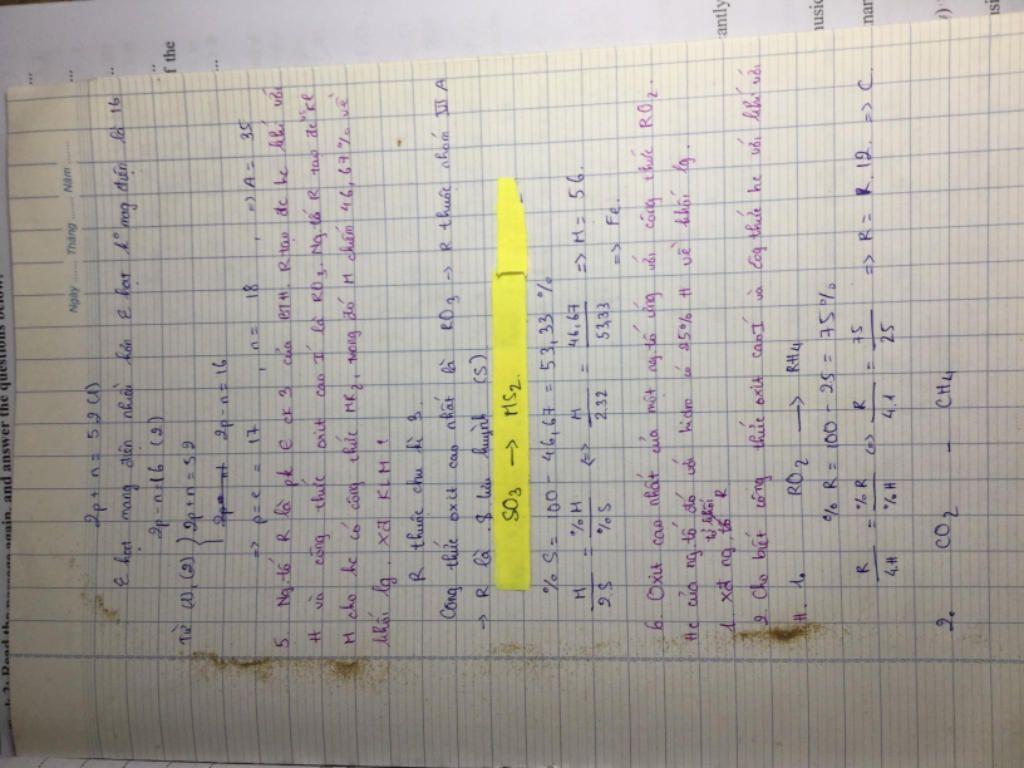 Ngày ...... Tháng ...... Năm ......
2p + n = 52 (1)
hạt mang điện nhiều hơn hạt ko mang điện là 16
2p - n = 16 (2)
Từ (1), (2) } 2p + n = 52
2p - n = 16
=> p = e = 17 , n = 18 , => A = 35
5. Ng.tố R là pk ∈ ck 3 của BTH. R tạo đc hc khí với
H và công thức oxit cao I là RO3. Ng.tố R tạo đc vs KL
M cho hc có công thức MR2, trong đó M chiếm 46,67% về
khối lg. xđ KL M?
R thuộc chu kì 3.
Công thức oxit cao nhất là RO3 -> R thuộc nhóm VI A
-> R là lưu huỳnh (S)
SO3 -> MS2.
% S = 100 - 46,67 = 53,33 %
M / 2.S = %M / %S <=> M / 2.32 = 46,67 / 53,33 => M = 56.
=> Fe.
6. Oxit cao nhất của một ng.tố ứng với công thức RO2.
Hc của ng.tố đó với hidro có 25% H về khối lg.
1. xđ ng.tố R
2. Cho biết công thức oxit cao I và công thức hc với khí với
H. 1. RO2 -> RH4
% R = 100 - 25 = 75%
R / 4.H = %R / %H <=> R / 4.1 = 75 / 25 => R = 12. => C.
2. CO2 - CH4
k 3: Read the passage again, and answer the questions below.
f the
antly
music